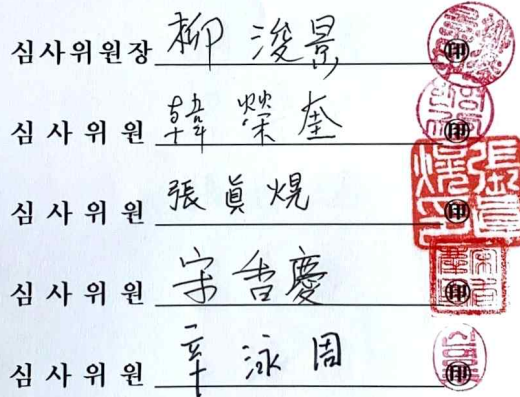 심사위원장 柳浚景 印
심사위원 韓榮奎 印
심사위원 張眞熀 印
심사위원 宋香慶 印
심사위원 辛泳周 印